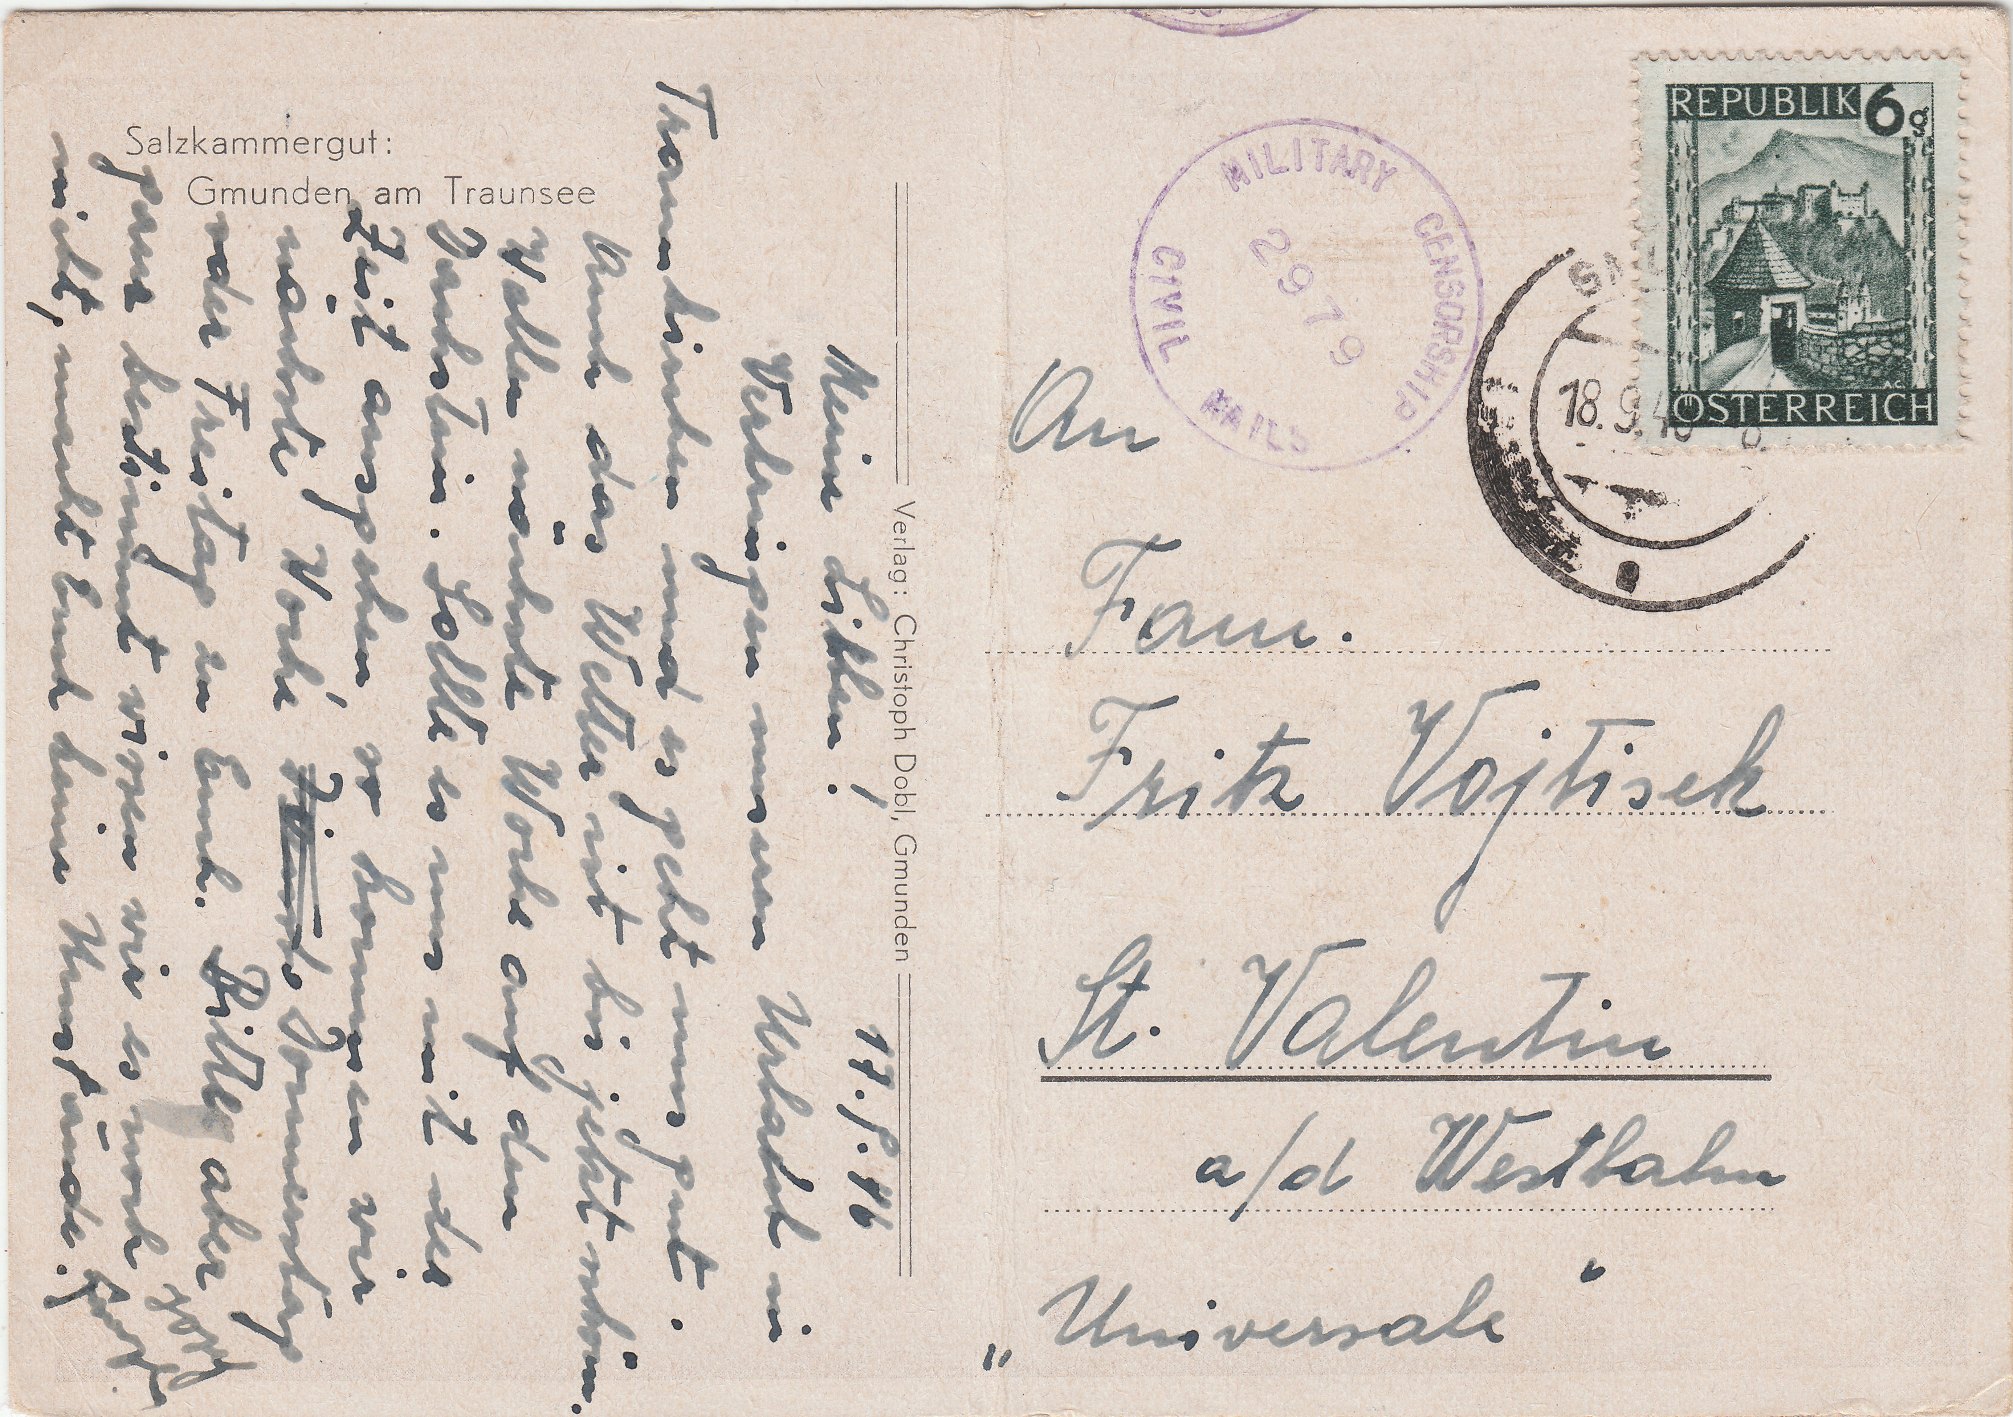 Salzkammergut:
Gmunden am Traunsee
17.9.46
Meine Lieben!
Verbringen unseren Urlaub in
Traunkirchen und es geht uns gut.
Auch das Wetter ist bis jetzt schön.
Wollen nächste Woche auf den
Dachstein. Sollte es nur mit der
Zeit ausgehen so kommen wir
nächste Woche Donnerstag
oder Freitag zu Euch. Bitte aber
ganz bestimmt wissen wir es noch
nicht, macht Euch keine Umstände.
Verlag: Christoph Dobl, Gmunden
MILITARY CENSORSHIP
CIVIL MAILS
2979
REPUBLIK 6g
ÖSTERREICH
A.C.
18.9.46
An
Fam.
Fritz Vojtisek
St. Valentin
a/d Westbahn
„Universale"